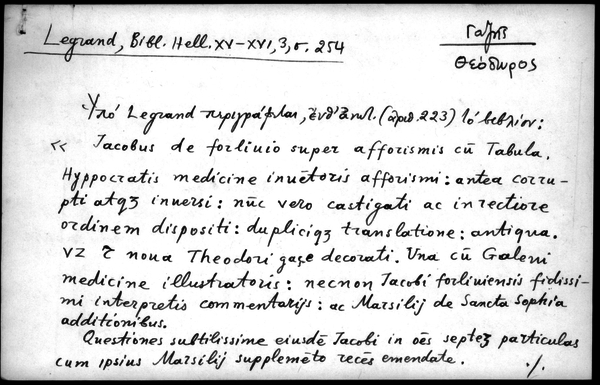 Legrand, Bibl. Hell. XV–XVI, 3, σ. 254
Γαζῆς
Θεόδωρος
Ὑπό Legrand περιγράφεται, ἔνθ' ἀνωτ. (ἀριθ. 223) τό βιβλίον:
« Iacobus de forliuio super afforismis cū Tabula.
Hyppocratis medicine inuētoris afforismi: antea corru-
pti atqz inuersi: nūc vero castigati ac in rectiore
ordinem dispositi: dupliciqz translatione: antiqua.
vz τ noua Theodori gaçe decorati. Una cū Galeni
medicine illustratoris: necnon Iacobi forliuiensis fidissi-
mi interpretis commentarijs: ac Marsilij de Sancta Sophia
additionibus.
Questiones subtilissime eiusdē Iacobi in oēs septez particulas
cum ipsius Marsilij supplemēto recēs emendate. ./.